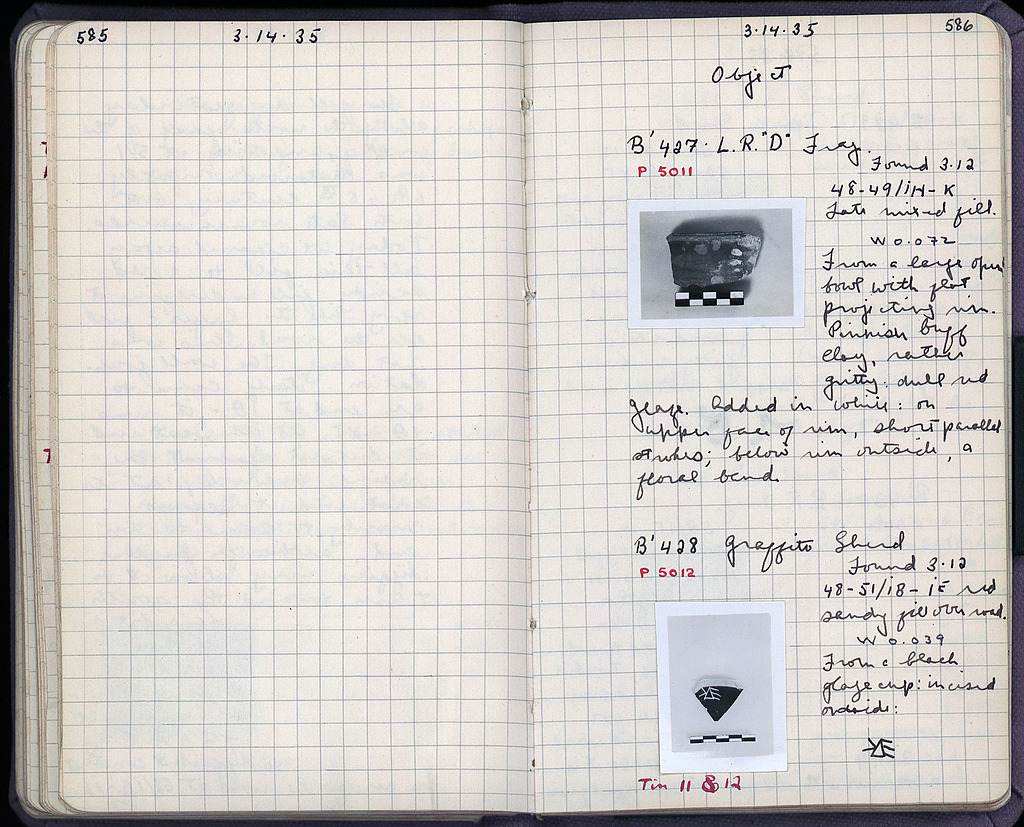 585
3·14·35
3·14·35
586
Object
B' 427 · L.R. "D" Frag.
P 5011
Found 3·12
48-49/ΙΗ-Κ
Late mixed fill.
W 0.072
From a large open
bowl with flat
projecting rim.
Pinkish buff
clay, rather
gritty. dull red
glaze. Added in white: on
upper face of rim, short parallel
strokes; below rim outside, a
floral band.
B' 428 Graffito Sherd
P 5012
Found 3·12
48-51/ΙΒ-ΙΕ red
sandy fill over road.
W 0.039
From a black
glaze cup: incised
outside:
Tin 11 & 12